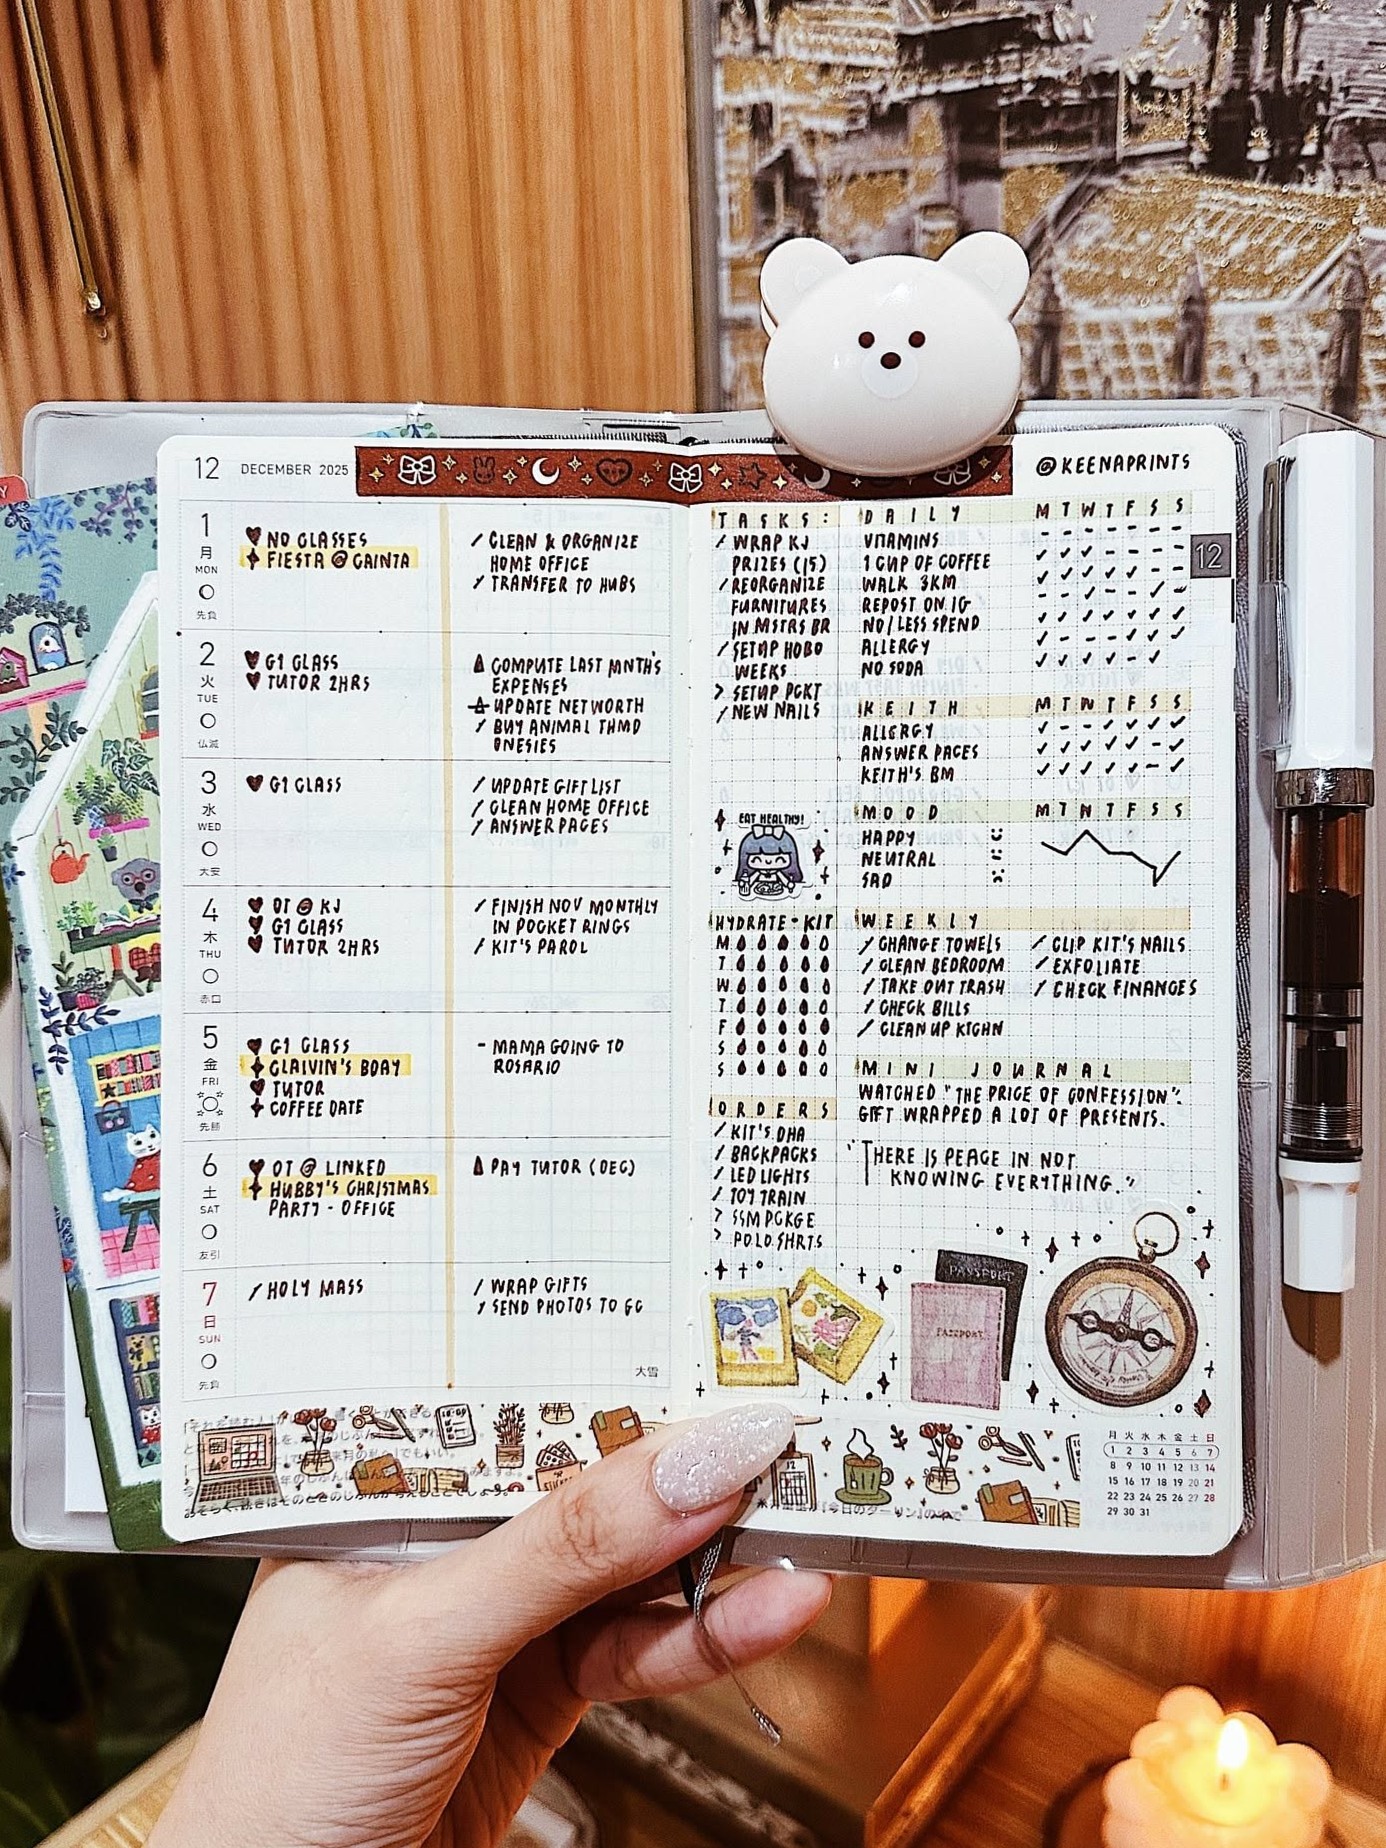 12 DECEMBER 2025
1
月
MON
先負
♥ NO CLASSES
✦ FIESTA @ CAINTA
/ CLEAN & ORGANIZE
HOME OFFICE
/ TRANSFER TO HUBS
2
火
TUE
仏滅
♥ G1 CLASS
♥ TUTOR 2HRS
COMPUTE LAST MNTH'S
EXPENSES
UPDATE NETWORTH
/ BUY ANIMAL THMD
ONESIES
3
水
WED
大安
♥ G1 CLASS
/ UPDATE GIFT LIST
/ CLEAN HOME OFFICE
/ ANSWER PAGES
4
木
THU
赤口
♥ OT @ KJ
♥ G1 CLASS
♥ TUTOR 2HRS
/ FINISH NOV MONTHLY
IN POCKET RINGS
/ KIT'S PAROL
5
金
FRI
先勝
♥ G1 CLASS
✦ CLAIVIN'S BDAY
♥ TUTOR
✦ COFFEE DATE
- MAMA GOING TO
ROSARIO
6
土
SAT
友引
♥ OT @ LINKED
✦ HUBBY'S CHRISTMAS
PARTY - OFFICE
PAY TUTOR (DEC)
7
日
SUN
先負
/ HOLY MASS
/ WRAP GIFTS
/ SEND PHOTOS TO GC
大雪
@KEENAPRINTS
12
TASKS:
/ WRAP KJ
PRIZES (15)
/ REORGANIZE
FURNITURES
IN MSTRS BR
/ SETUP HOBO
WEEKS
> SETUP PCKT
/ NEW NAILS
DAILY M T W T F S S
VITAMINS
1 CUP OF COFFEE
WALK 3KM
REPOST ON IG
NO/LESS SPEND
ALLERGY
NO SODA
KEITH M T W T F S S
ALLERGY
ANSWER PAGES
KEITH'S BM
MOOD M T W T F S S
HAPPY
NEUTRAL
SAD
EAT HEALTHY!
HYDRATE - KIT
M
T
W
T
F
S
S
WEEKLY
/ CHANGE TOWELS
/ CLEAN BEDROOM
/ TAKE OUT TRASH
/ CHECK BILLS
/ CLEAN UP KTCHN
/ CLIP KIT'S NAILS
/ EXFOLIATE
/ CHECK FINANCES
ORDERS
/ KIT'S DHA
/ BACKPACKS
/ LED LIGHTS
/ TOY TRAIN
> SSM PCKGE
> POLO SHRTS
MINI JOURNAL
WATCHED "THE PRICE OF CONFESSION".
GIFT WRAPPED A LOT OF PRESENTS.
"THERE IS PEACE IN NOT
KNOWING EVERYTHING."
PASSPORT
PASSPORT
月 火 水 木 金 土 日
1 2 3 4 5 6 7
8 9 10 11 12 13 14
15 16 17 18 19 20 21
22 23 24 25 26 27 28
29 30 31